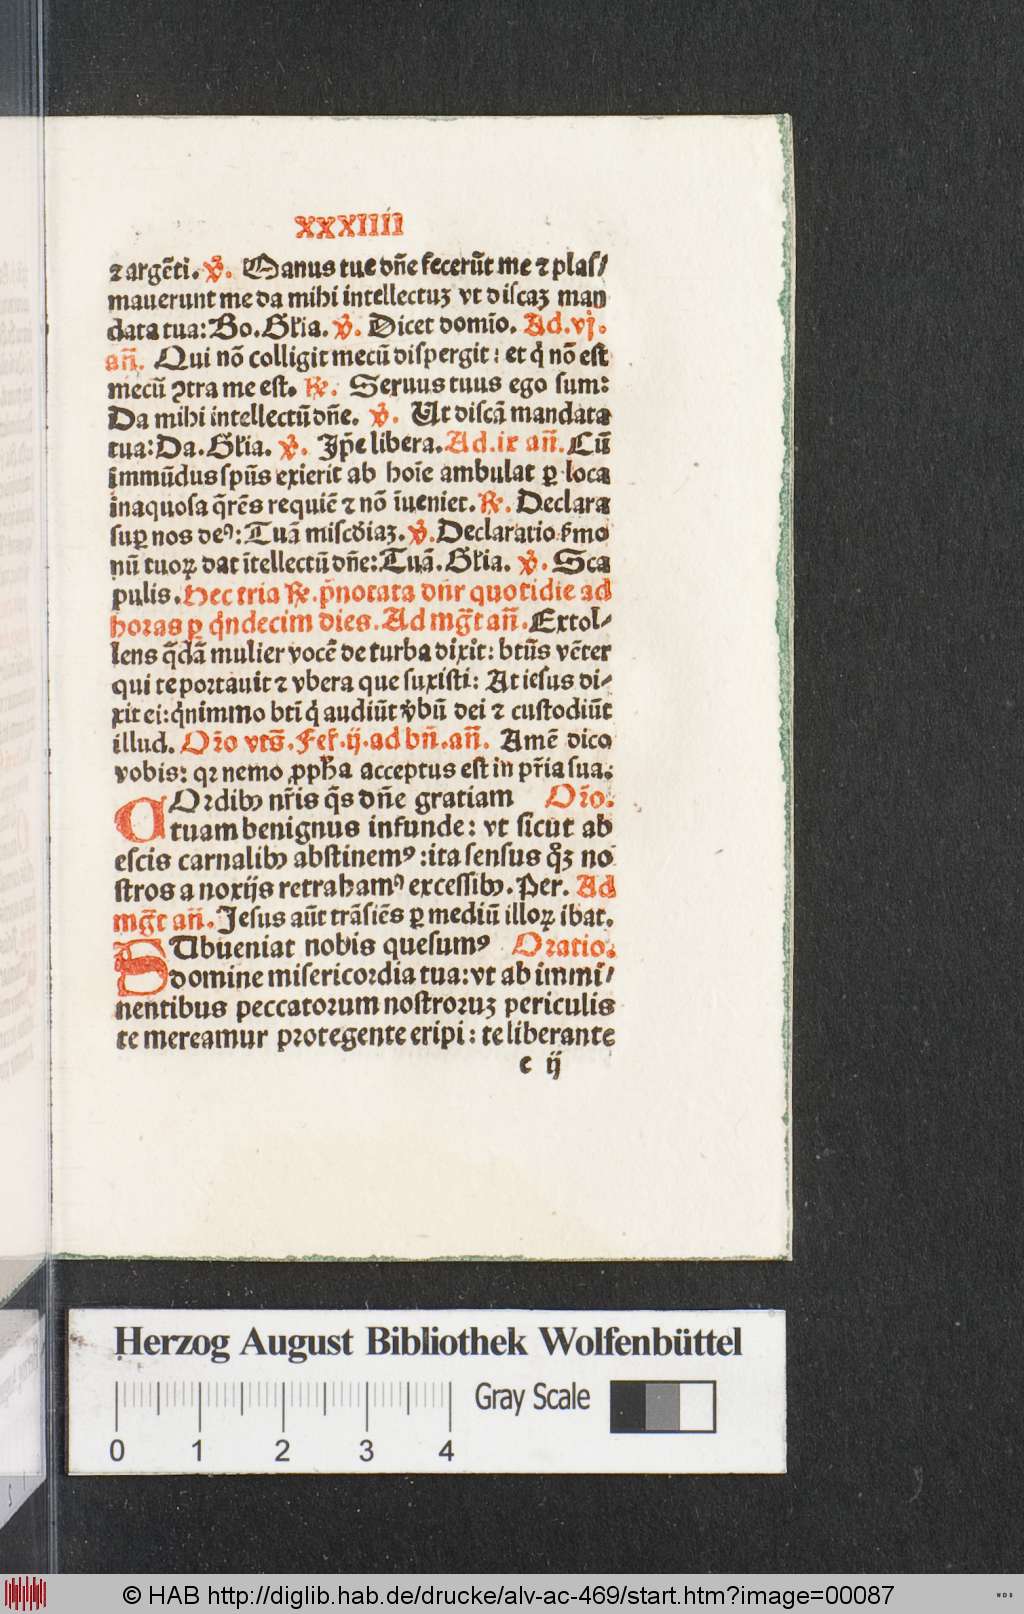 XXXIIII
⁊ argēti. ℣. Manus tue dn̄e fecerūt me ⁊ plas/
mauerunt me da mihi intellectuꝫ vt discaꝫ man
data tua: Bo. Gl̓ia. ℣. Dicet domīo. Ad.vj.
an̄. Qui nō colligit mecū dispergit: et q̇ nō est
mecū ꝯtra me est. ℟. Seruus tuus ego sum:
Da mihi intellectū dn̄e. ℣. Ut discā mandata
tua: Da. Gl̓ia. ℣. Ip̄e libera. Ad.ix an̄. Cū
immūdus spūs exierit ab hoīe ambulat ꝑ loca
inaquosa q̄rēs requiē ⁊ nō īueniet. ℟. Declara
suꝑ nos deꝰ: Tuā misc̄diaꝫ. ℣. Declaratio ẜmo
nū tuoꝝ dat ītellectū dn̄e: Tuā. Gl̓ia. ℣. Sca
pulis. Hec tria ℟. p̄notata dn̄r quotidie ad
horas ꝑ q̇ndecim dies. Ad mg̅t an̄. Extol/
lens q̄dā mulier vocē de turba dixit: btūs vēter
qui te portauit ⁊ vbera que suxisti: At iesus di/
xit ei: q̇nimmo btī q̇ audiūt v̓bū dei ⁊ custodiūt
illud. Or̄o vts̄. Fer̄.ij.ad bn̄.an̄. Amē dico
vobis: qꝛ nemo ꝓph̄a acceptus est in pr̄ia sua.
COrdibꝫ nr̄is q̄s dn̄e gratiam Or̄o.
tuam benignus infunde: vt sicut ab
escis carnalibꝫ abstinemꝰ: ita sensus qͦꝫ no
stros a noxijs retrahamꝰ excessibꝫ. Per. Ad
mg̅t an̄. Jesus aūt trāsiēs ꝑ mediū illoꝝ ibat.
SUbueniat nobis quesumꝰ Oratio.
domine misericordia tua: vt ab immi/
nentibus peccatorum nostroruꝫ periculis
te mereamur protegente eripi: te liberante
e ij
Herzog August Bibliothek Wolfenbüttel
Gray Scale
0 1 2 3 4
© HAB http://diglib.hab.de/drucke/alv-ac-469/start.htm?image=00087